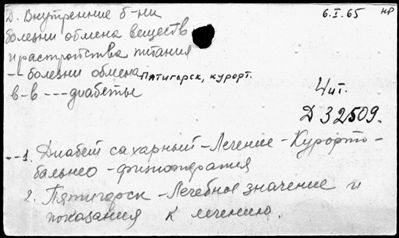 Д. Внутренние б-ни
6.I.65 НР
болезни обмена веществ
и расстройства питания
-- болезни обмена Пятигорск, курорт.
в-в --- диабеты
Чит.
Д 32509.
--1. Диабет сахарный - Лечение - Курорто-
бальнео - физиотерапия
2. Пятигорск - Лечебное значение и
показания к лечению.